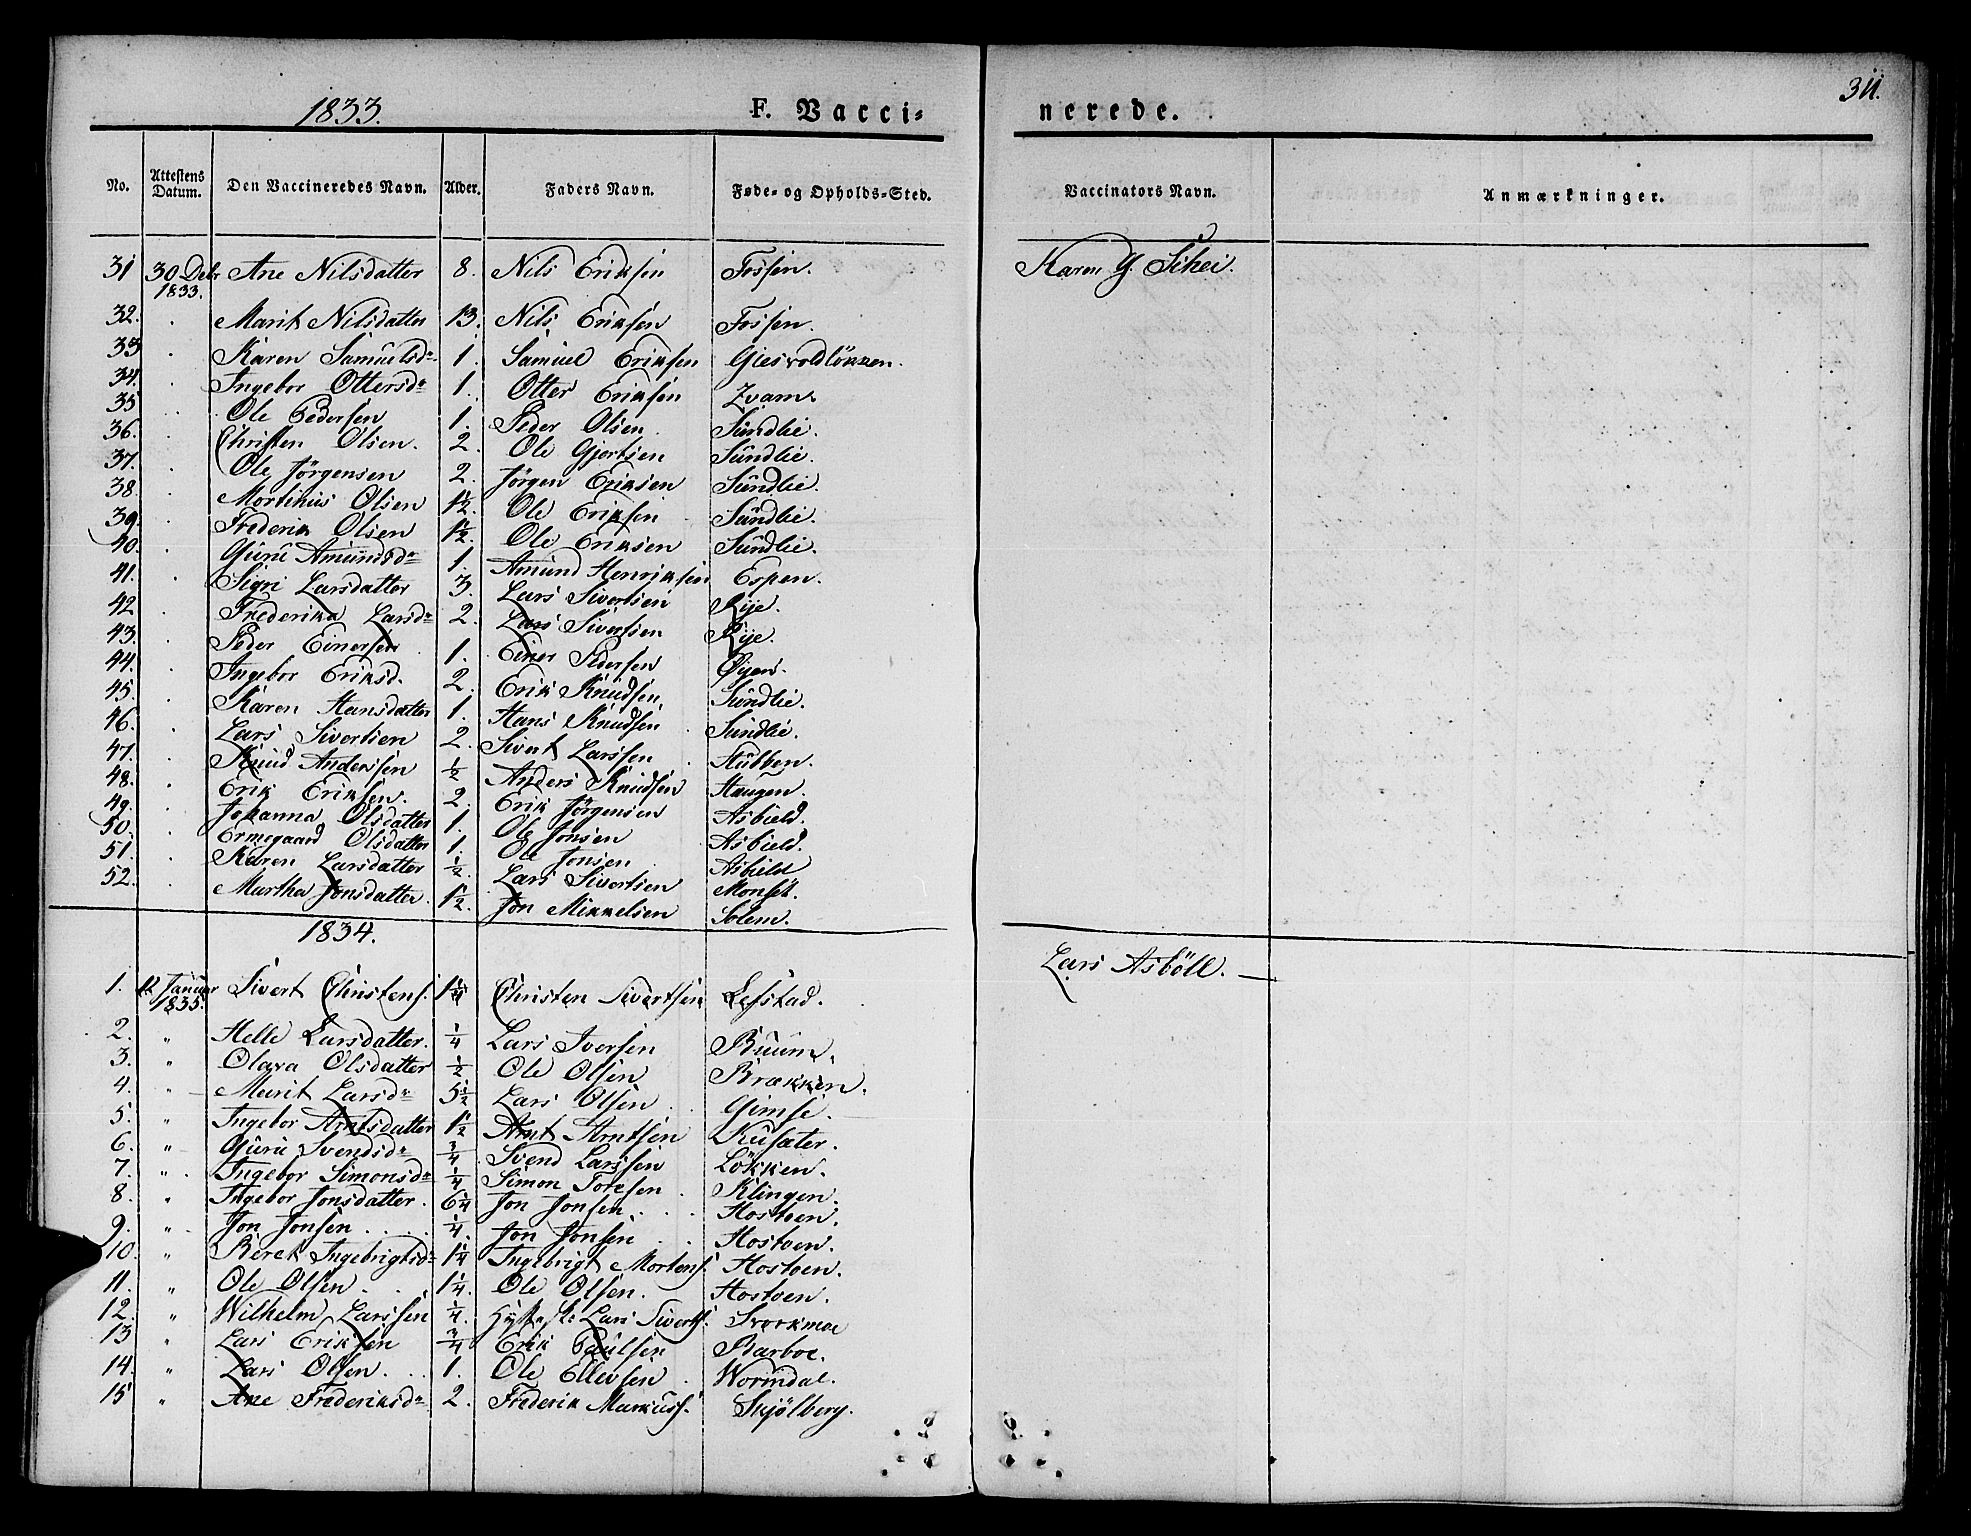 1833. F. Vacci= nerede. 311.
No. Attestens Datum. Den Vaccineredes Navn. Alder. Faders Navn. Føde= og Opholds=Sted. Vaccinators Navn. Anmærkninger.
31 30 Debr 1833. Ane Nilsdatter 8. Nils Eriksen Fossen. Karen G. Schei.
32. Marit Nilsdatter 13. Nils Eriksen Fossen.
33 Karen Samuelsdr 1. Samuel Eriksen Giesvoldløkken.
34. Ingebor Ottersdr 1. Otter Eriksen Zvam.
35 Ole Pedersen 1. Peder Olsen Sundlie.
36. Christen Olsen. 2. Ole Gjertsen Sundlie.
37. Ole Jörgensen 2. Jörgen Eriksen Sundlie.
38. Mortinus Olsen 1½. Ole Eriksen Sundlie.
39. Frederik Olsen 1½. Ole Eriksen Sundlie.
40. Guru Amundsdr 1. Amund Henriksen Espen.
41. Sigri Larsdatter 3. Lars Sivertsen Rije.
42 Frederika Larsdr 2. Lars Sivertsen Rije.
43. Peder Einersen 1. Einer Pedersen Øijen.
44. Ingebor Eriksd. 2. Erik Knudsen Sundlie.
45. Karen Hansdatter 1. Hans Knudsen Sundlie.
46. Lars Sivertsen 2. Sivert Larssen Hubben.
47. Knud Andersen ½ Anders Knudsen Haugen.
48. Erik Eriksen. 2. Erik Jörgensen Asbield.
49. Johanna Olsdatter 1. Ole Jonsen Asbield.
50. Ermegaard Olsdatter 1. Ole Jonsen Asbield
51. Karen Larsdatter ½. Lars Sivertsen Monset.
52. Martha Jonsdatter. 1½. Jon Mikkelsen Solem.
1834.
1. 12 Januar 1835. Sivert Christens. 1¼ Christen Sivertsen Lefstad. Lars Asböll.
2. " Helle Larsdatter. ¼ Lars Iversen Buum.
3. " Olava Olsdatter ½ Ole Olsen Brækken.
4. " Marit Larsdr 5½ Lars Olsen Gimse.
5. " Ingebor Arntsdatter 1½ Arnt Arntsen Kusæter.
6. " Guru Svendsdr ¾ Svend Larssen Løkken.
7. " Ingebor Simonsdr ¼ Simon Toresen Klingen.
8. " Ingebor Jonsdatter. 6¼ Jon Jonsen Hostoen.
9. " Jon Jonsen ¼ Jon Jonsen Hostoen.
10. " Beret Ingebrigtsdr 1¼ Ingebrigt Mortens. Hostoen.
11. " Ole Olsen 1¼. Ole Olsen. Hostoen.
12. " Wilhelm Larssen ¼. Lars Siverts. Svorkmoe
13 " Lars Eriksen ¾ Erik Paulsen Barboe.
14. " Lars Olsen. 1. Ole Ellevsen Wormdal.
15 " Ane Frederiksdr 2. Frederik Markuss. Skjølberg.